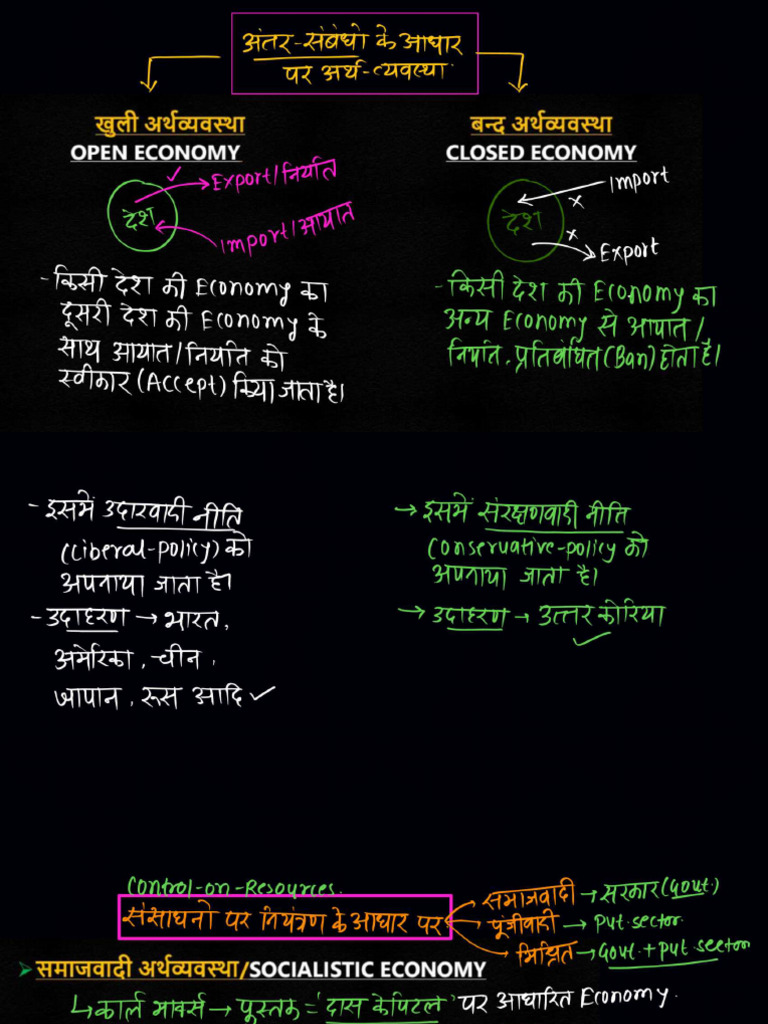 अंतर-संबंधो के आधार
पर अर्थ-व्यवस्था
खुली अर्थव्यवस्था
OPEN ECONOMY
देश
Export/निर्यात
Import/आयात
- किसी देश की Economy का
दूसरी देश की Economy के
साथ आयात/निर्यात को
स्वीकार (Accept) किया जाता है।
- इसमें उदारवादी नीति
(Liberal-policy) को
अपनाया जाता है।
- उदाहरण → भारत,
अमेरिका, चीन,
जापान, रूस आदि ✓
बन्द अर्थव्यवस्था
CLOSED ECONOMY
देश
Import
x
x
Export
- किसी देश की Economy का
अन्य Economy से आयात/
निर्यात, प्रतिबंधित (Ban) होता है।
→ इसमें संरक्षणवादी नीति
Conservative-policy को
अपनाया जाता है।
→ उदाहरण → उत्तर कोरिया
✓
Control-on-Resources.
संसाधनो पर नियंत्रण के आधार पर
समाजवादी → सरकार (Govt.)
पूंजीवादी → Pvt. sector
मिश्रित → Govt. + Pvt. sector
➤ समाजवादी अर्थव्यवस्था/SOCIALISTIC ECONOMY
↳ कार्ल मार्क्स → पुस्तक = 'दास केपिटल' पर आधारित Economy.